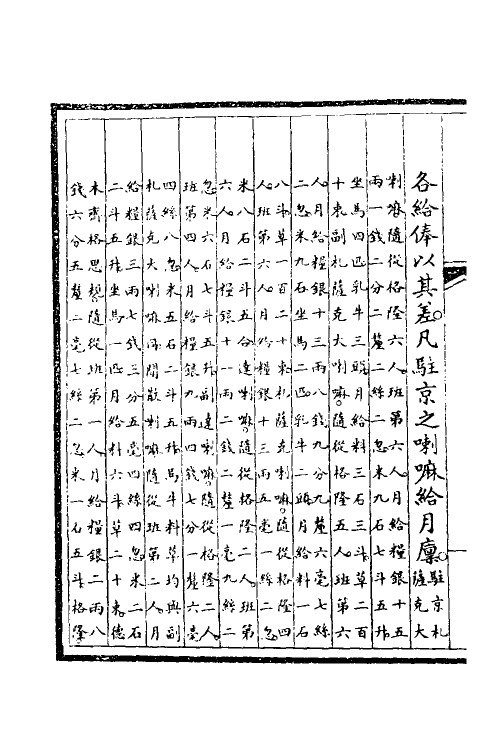 各給俸以其差凡駐京之喇嘛給月廩駐京札
薩克大
喇嘛隨從格隆六人班第六人月給糧銀十五
兩一錢二分二釐二絲二忽米九石七斗五升
坐馬四匹乳牛三頭月給料三石三斗草二百
十束副札薩克大喇嘛隨從格隆五人班第六
人月給糧銀十三兩八錢九分九釐六毫七絲
二忽米九石坐馬二匹乳牛二頭月給料一石
八斗草一百二十束札薩克喇嘛隨從格隆四
人班第六人月給糧銀十三兩五毫一絲二忽
米八石二斗五合達喇嘛隨從格隆二人班第
六人月給糧銀十一兩二錢二釐一毫九絲二
忽米六石七斗五升副達喇嘛隨從格隆二人
班第四人月給糧銀九兩四錢七分一釐六毫
四絲八忽米五石二斗五升馬牛料草均與副
札薩克大喇嘛同閒散喇嘛隨從班第二人月
給糧銀三兩七錢三分五毫四絲四忽米二石
二斗五升坐馬一匹月給料六斗草二十束德
木齊格思規隨從班第一人月給糧銀二兩八
錢六分五釐二毫七絲二忽米一石五斗格隆